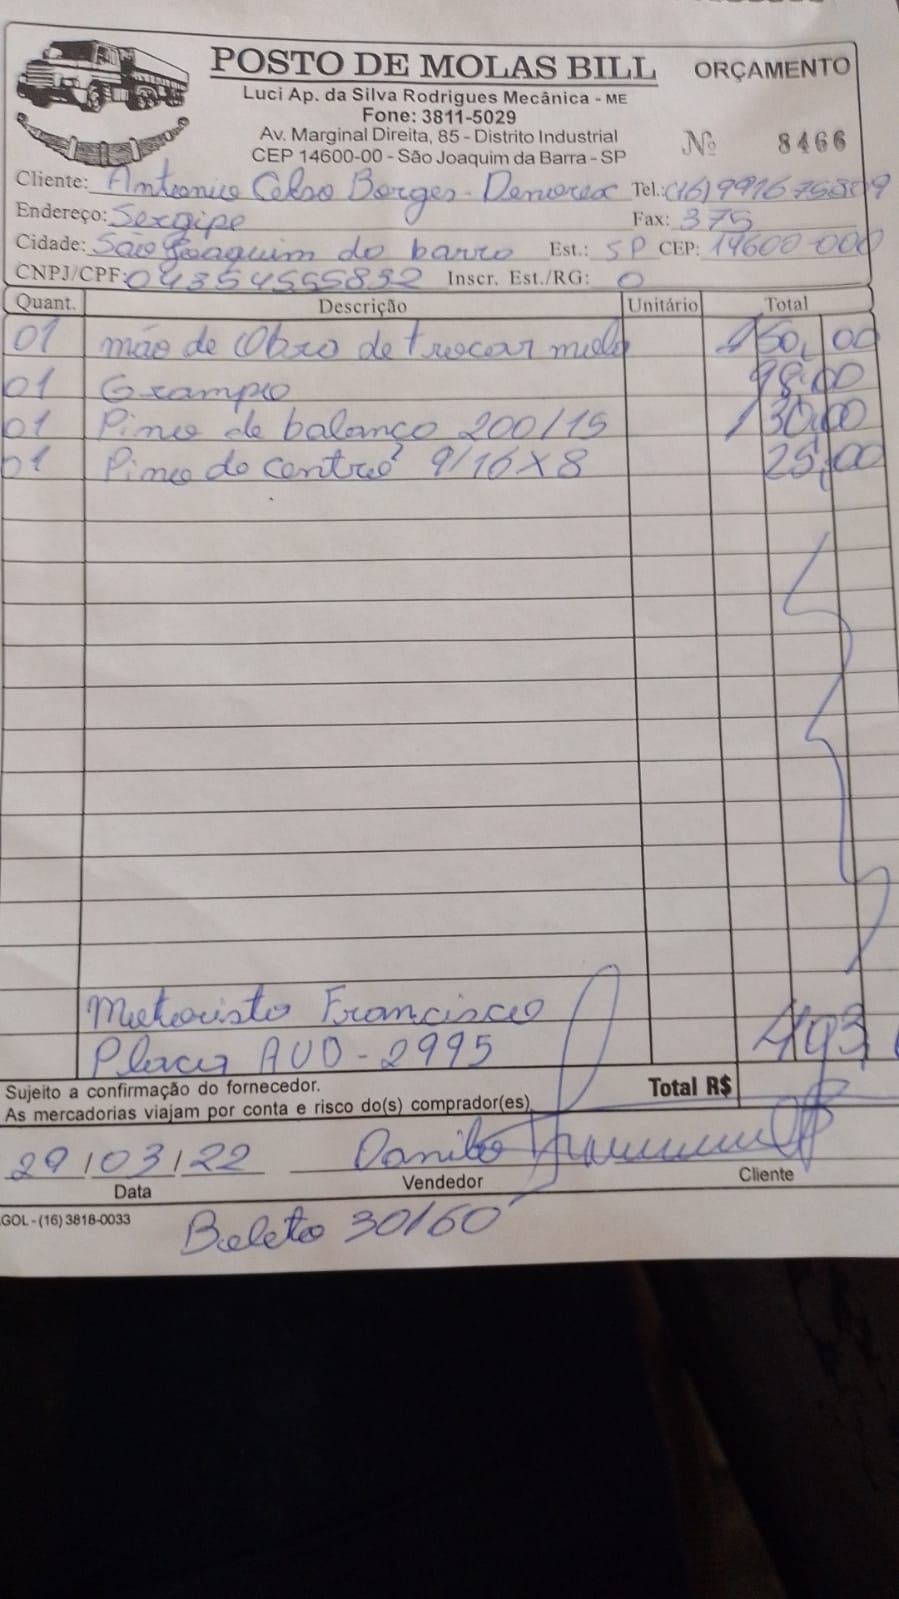 POSTO DE MOLAS BILL ORÇAMENTO
Luci Ap. da Silva Rodrigues Mecânica - ME
Fone: 3811-5029
Av. Marginal Direita, 85 - Distrito Industrial
CEP 14600-00 - São Joaquim da Barra - SP
Nº 8466
Cliente: Antonio Celso Borges Tel.: (16)
Endereço: Sergipe Fax: 375
Cidade: São Joaquim da barra Est.: SP CEP: 14600-000
CNPJ/CPF: 04354555832 Inscr. Est./RG: 0
Quant. Descrição Unitário Total
01 mão de Obra de trocar mola 150,00
01 Grampo 98,00
01 Pino de balanço 200/15 130,00
01 Pino de centro 9/16 X 8 25,00
Motorista Francisco
Placa AUO-2995
493
Sujeito a confirmação do fornecedor.
As mercadorias viajam por conta e risco do(s) comprador(es)
Total R$
29/03/22 Danilo
Data Vendedor Cliente
GOL - (16) 3818-0033
Boleto 30/60